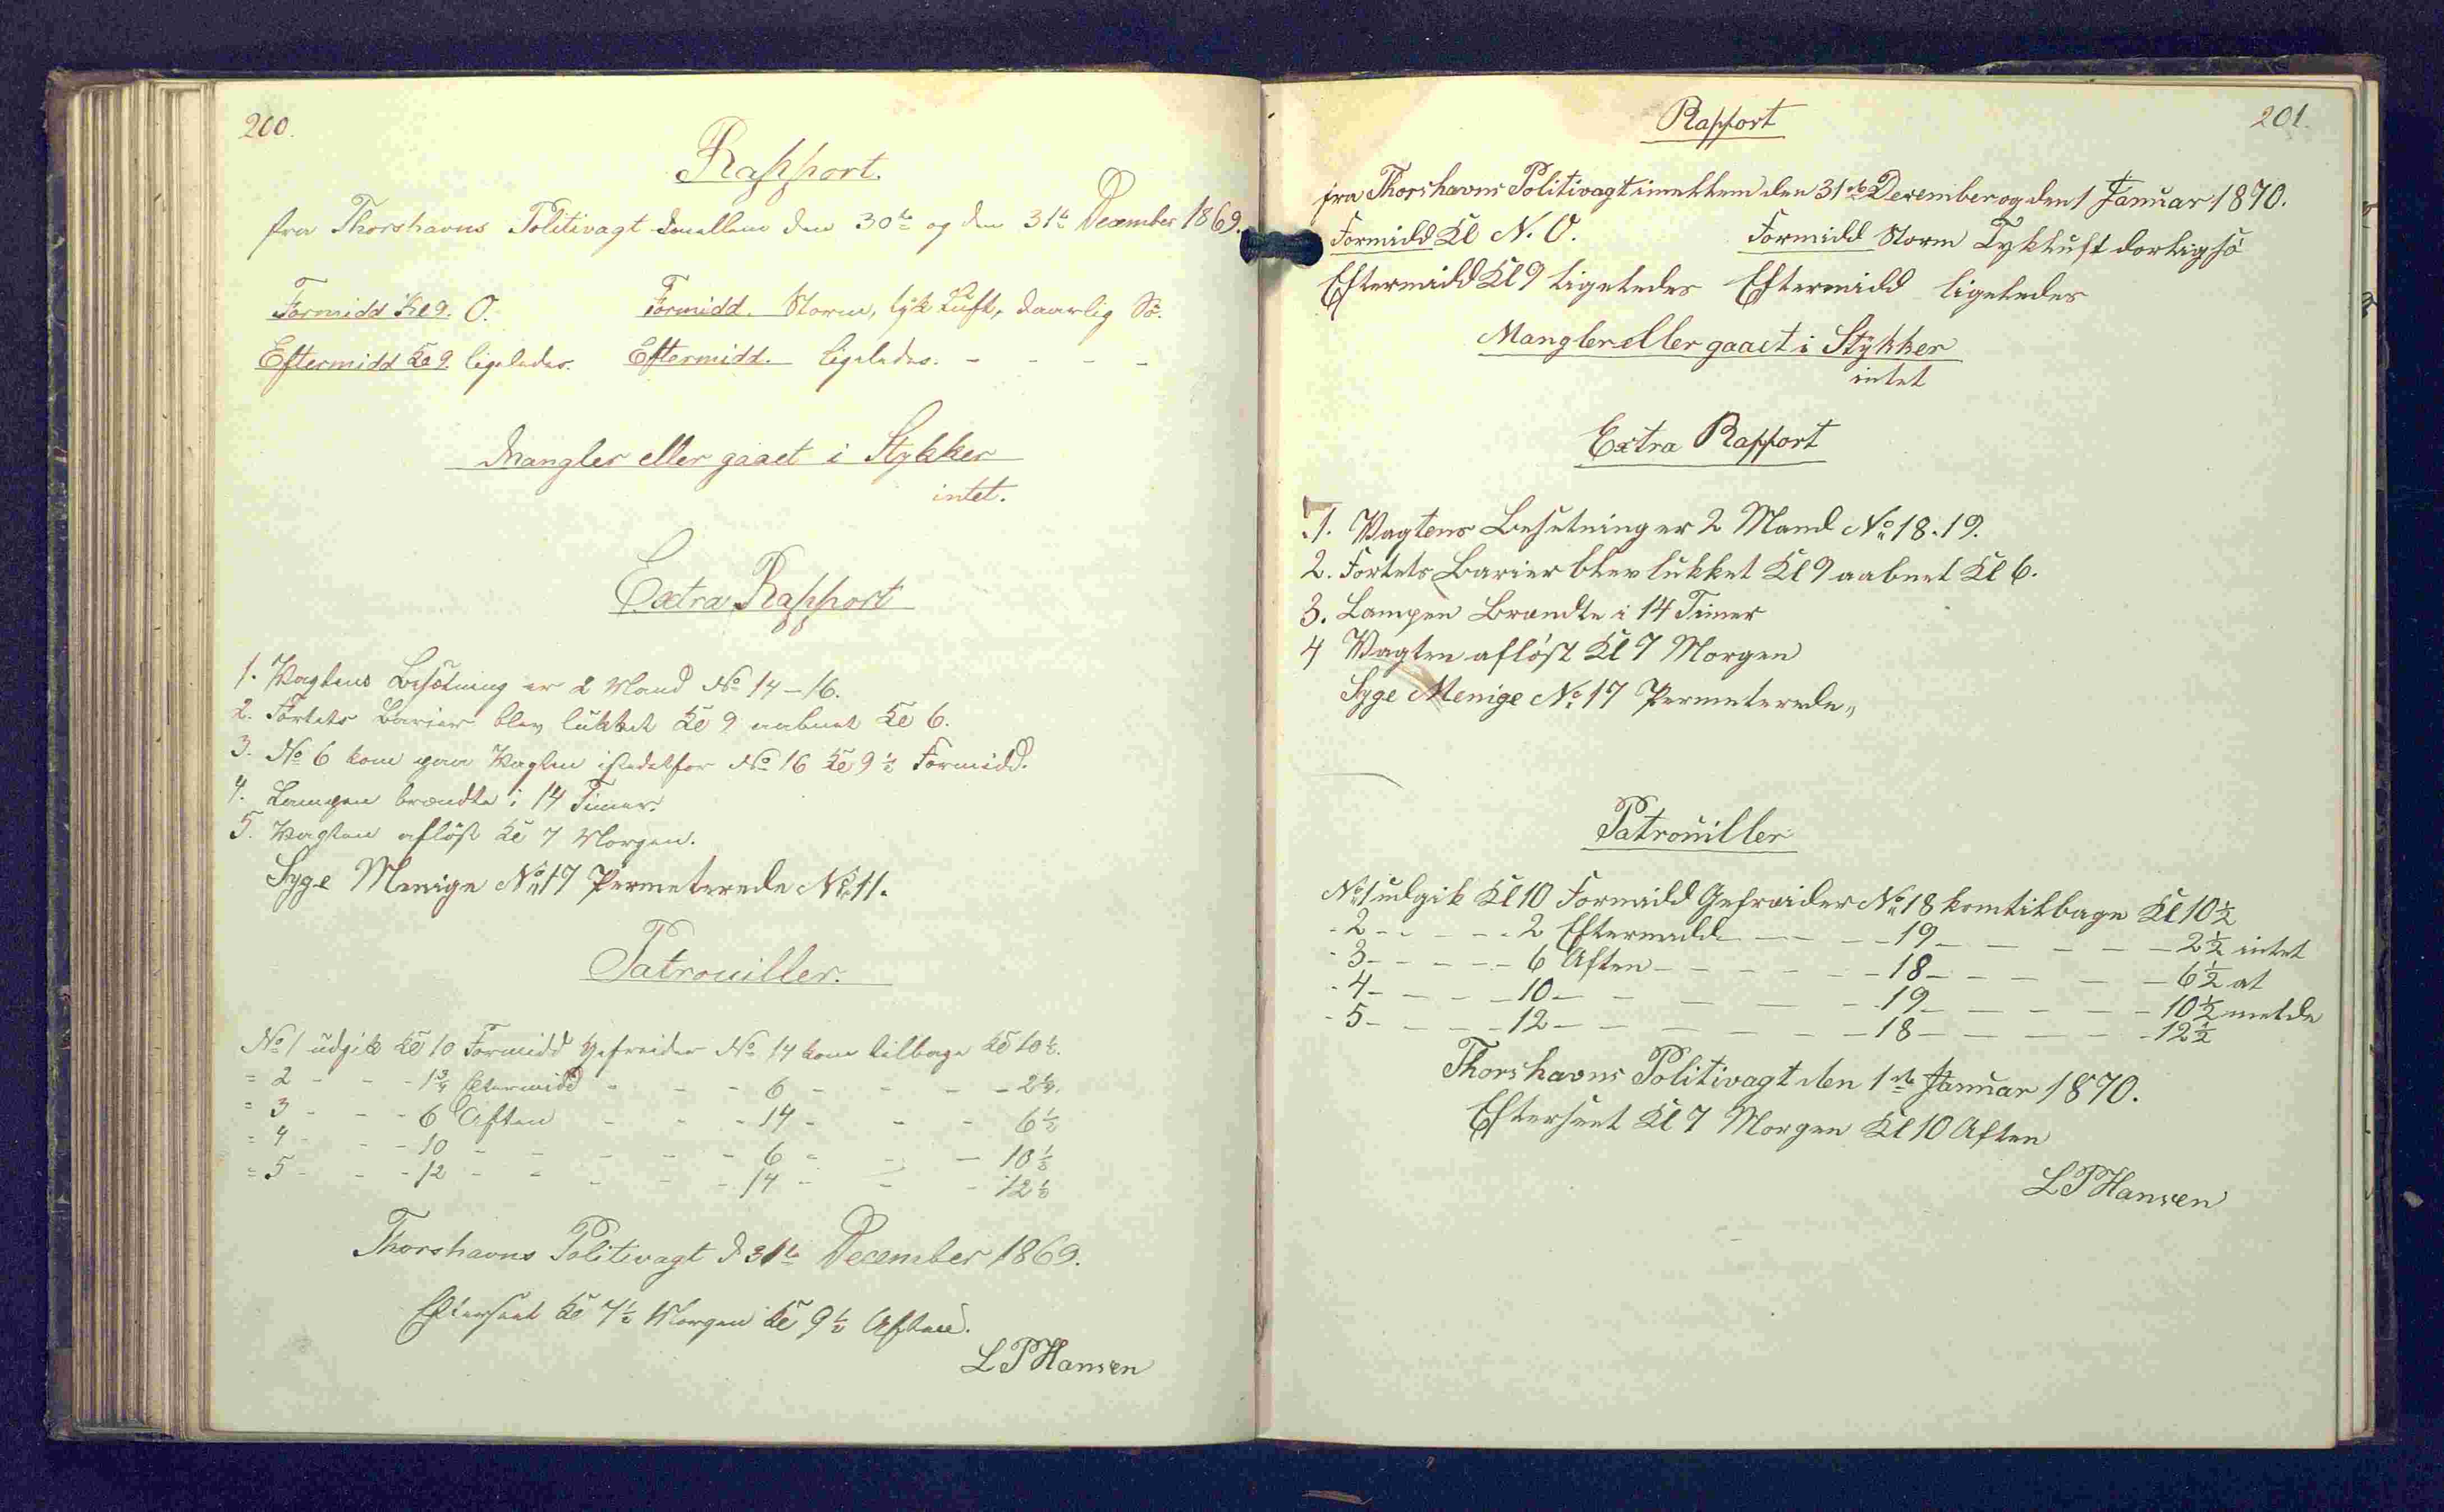 200.
Rapport.
fra Thorshavns Politivagt imellem den 30te og den 31te December 1869.
Formidd Kl 9. O. Formidd. Storm, tyk Luft, daarlig Sö.
Eftermidd Kl 9 ligeledes. Eftermidd. ligeledes. - - - -
Mangler eller gaaet i Stykker
intet.
Extra Rapport
1. Vagtens Besætning er 2 Mand No 14-16.
2. Fortets Barier blev lukket Kl 9 aabnet Kl 6.
3. No 6 kom paa Vagten istedetfor No 16 Kl 9 ½ Formidd.
4. Lampen brændte i 14 Timer.
5. Vagten aflöst Kl 7 Morgen.
Syge Menige No 17 Permeterede No 11.
Patrouiller.
No 1 udgik Kl 10 Formidd Gefreider No 14 kom tilbage Kl 10 ½.
= 2 - - - 1¾ Eftermidd - - - 6 - - - - 2¼.
= 3 - - - 6 Aften - - - 14 - - - 6 ½
= 4 - - - 10 - - - - - 6 - - - 10 ½
= 5 - - - 12 - - - - - 14 - - - 12 ½
Thorshavns Politivagt d 31te December 1869.
Efterseet Kl 7½ Morgen Kl 9½ Aften.
L P Hansen
201.
Rapport
fra Thorshavns Politivagt imellem den 31te December og den 1 Januar 1870.
Formidd Kl N. O. Formidd Storm Tykluft dorlig sö
Eftermidd Kl 9 ligeledes Eftermidd ligeledes
Mangler eller gaaet i Stykker
intet
Extra Rapport
1. Vagtens Besetning er 2 Mand No 18. 19.
2. Fortets Barier blev lukket Kl 9 aabnet Kl 6.
3. Lampen Brændte i 14 Timer
4 Vagten aflöst Kl 7 Morgen
Syge Menige No 17 Permeterede „
Patrouiller
No 1 udgik Kl 10 Formidd Gefreider No 18 kom tilbage Kl 10 ½
- 2 - - - - - 2 Eftermidd - - - - 19 - - - - - 2 ½ intet
- 3 - - - - - 6 Aften - - - - - 18 - - - - - 6 ½ at
- 4 - - - - 10 - - - - - - 19 - - - - - 10 ½ melde
- 5 - - - - 12 - - - - - - 18 - - - - - 12 ½
Thorshavns Politivagt den 1ste Januar 1870.
Efterseet Kl 7 Morgen Kl 10 Aften
L P Hansen